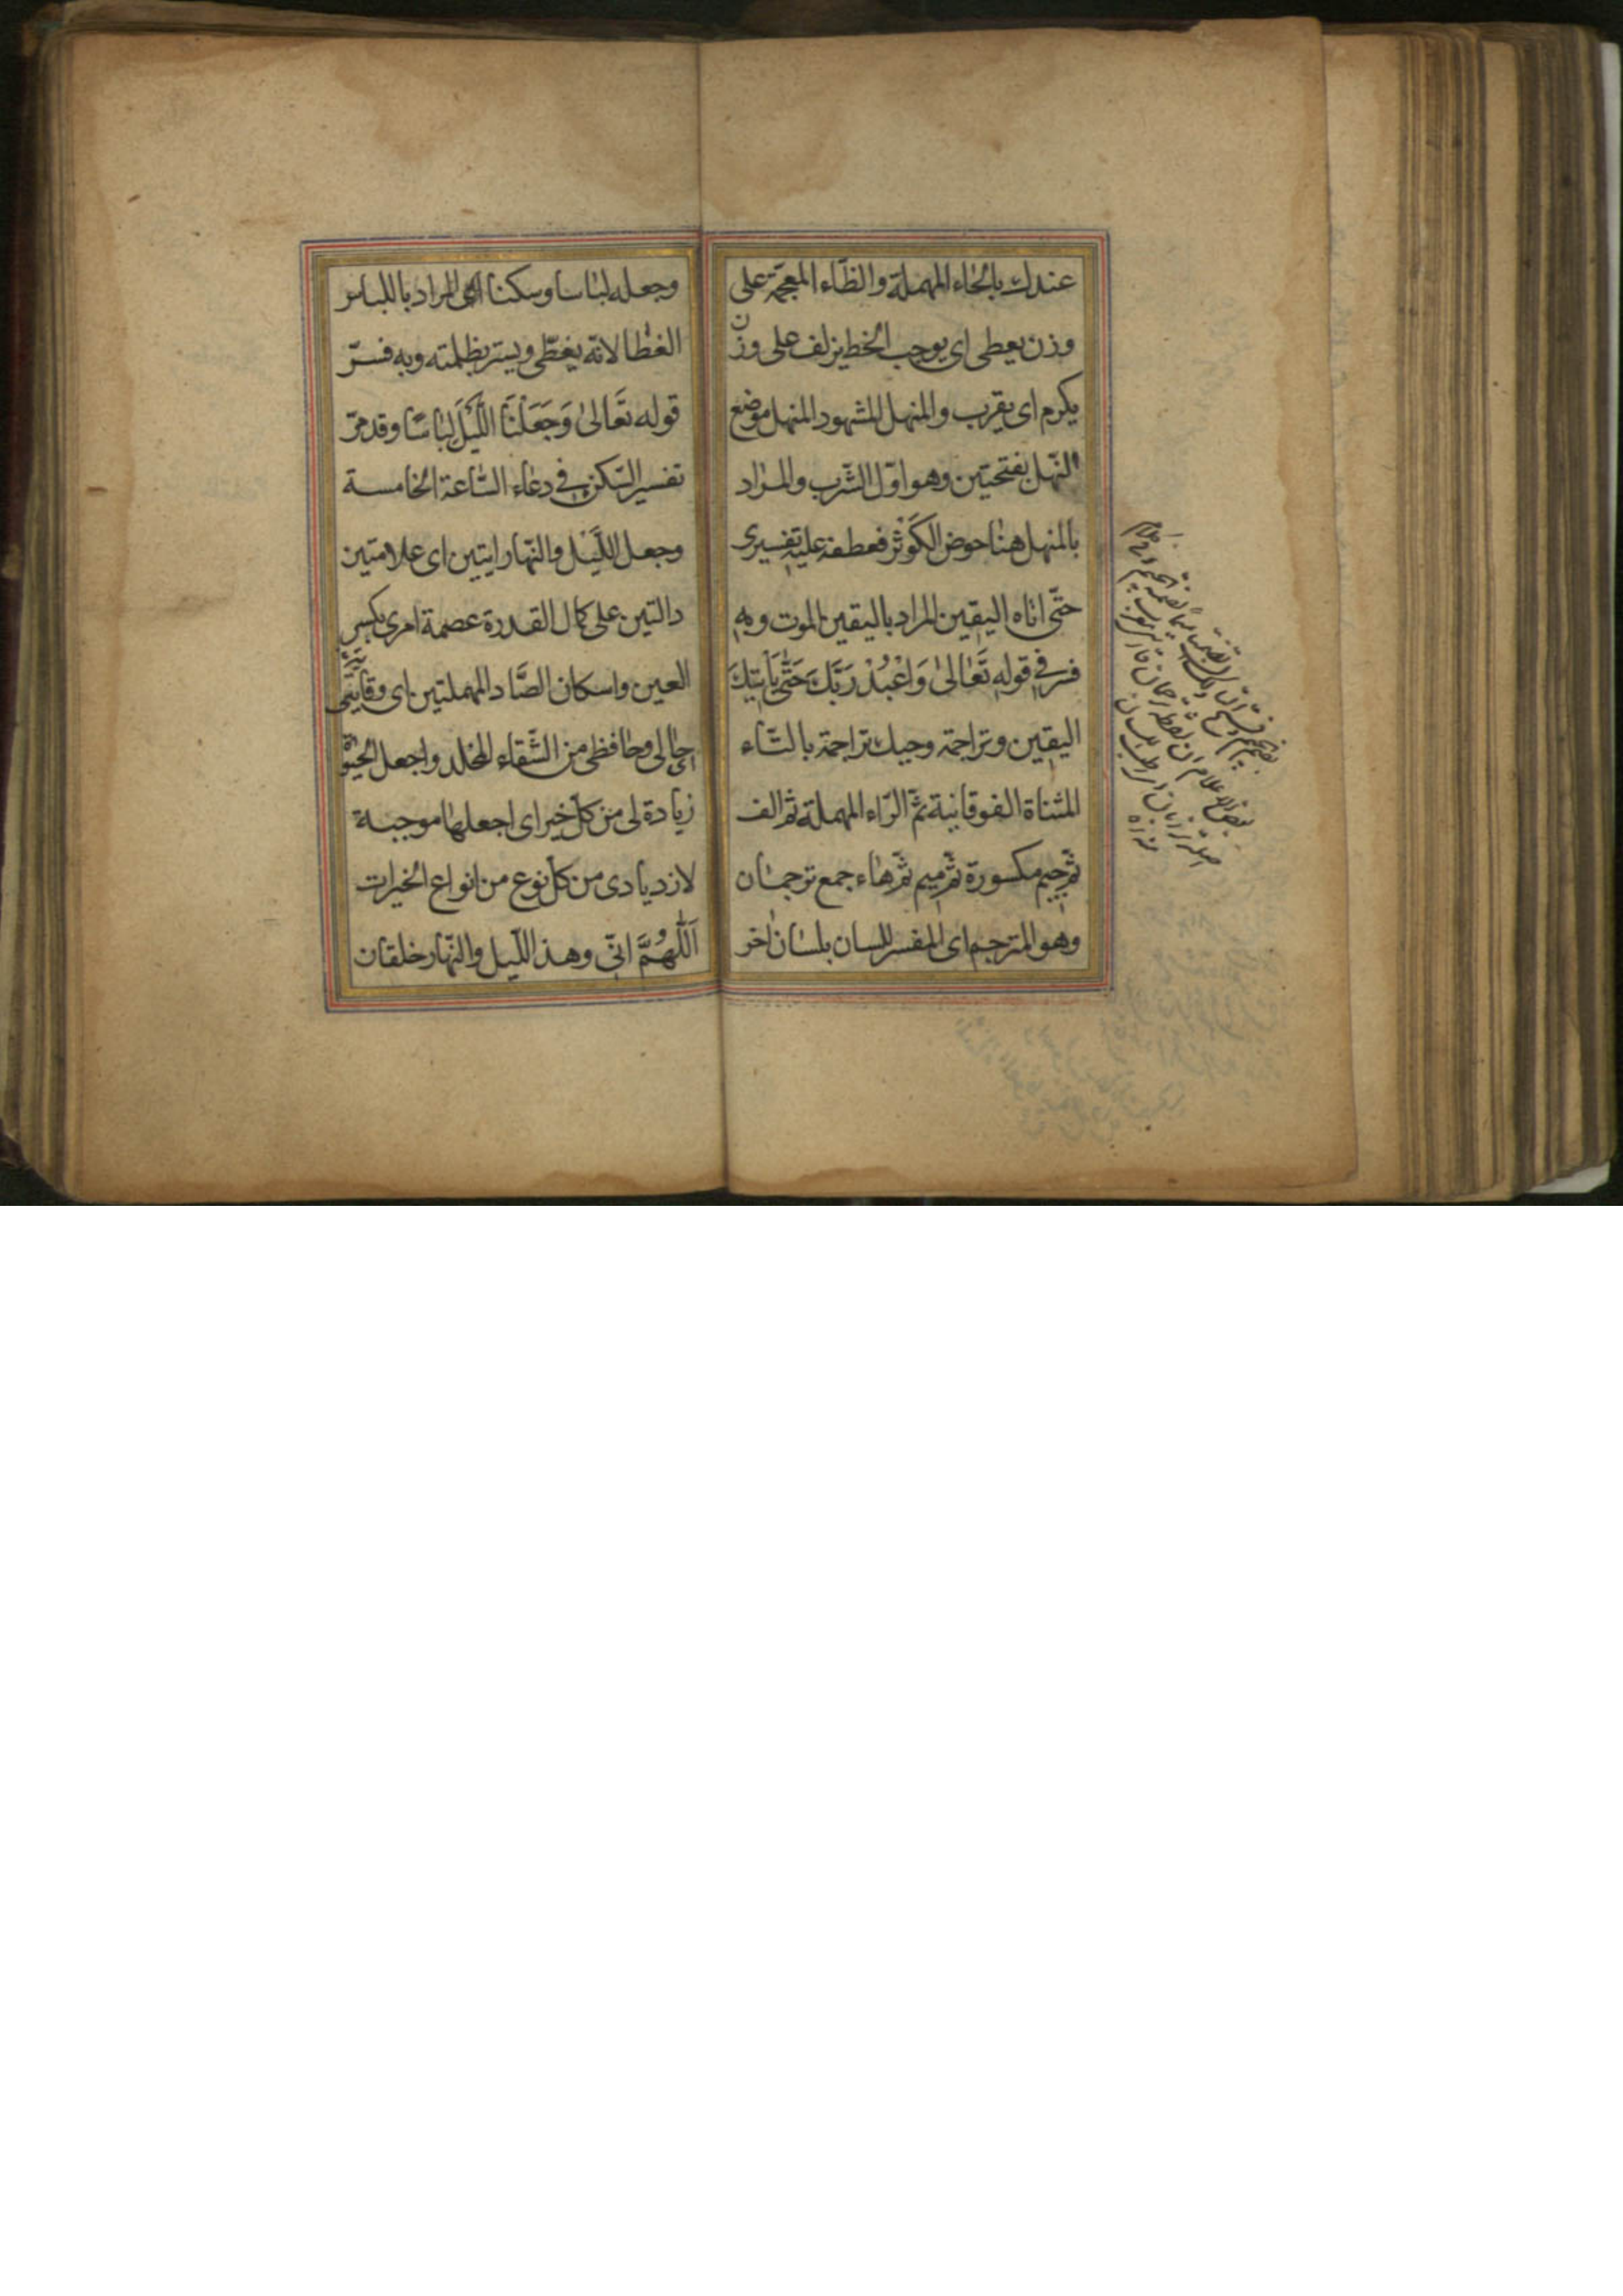 عندك بالحاء المهملة والظاء المعجمة على
وزن يعطى اى يوجب الخط يزلف على وزن
يكرم اى يقرب والمنهل المشهود المنهل موضع
النهل بفتحتين وهو اوّل الشّرب والمراد
بالمنهل هنا حوض الكَوْثَر فعطفه عليه تفسيرى
حتّى اتاه اليقين المراد باليقين الموت وبه
فسر فى قوله تَعَالىٰ وَاعْبُدْ رَبَّكَ حَتّٰى يَأتِيَكَ
اليقين وتراجمة وحيك تراجمة بالتّاء
المثناة الفوقانية ثمّ الرّاء المهملة ثمّ الف
ثمّ جيم مكسورة ثمّ ميم ثمّ هاء جمع ترجمان
وهو المترجم اى المفسر للسان بلسان اخر
وجعله لباسا وسكنا اى المراد باللباس
الغطا لانّه يغطّى ويستر بظلمته وبه فسّر
قوله تَعَالىٰ وَجَعَلْنَا اللَّيْلَ لِبَاسًا وقد مرّ
تفسير السّكن فى دعاء السّاعة الخامسة
وجعل اللَّيْل والنّهار ايتين اى علامتين
دالتين على كمال القدرة عصمة امرى بكسر
العين واسكان الصَّاد المهملتين اى وقايتى
حالى وحافظى من الشّقاء المخلد واجعل الحيٰوة
زيادة لى من كلّ خير اى اجعلها موجبة
لازديادى من كلّ نوع من انواع الخيرات
اَللّٰهُمَّ انّى وهذ اللّيل والنّهار خلقان